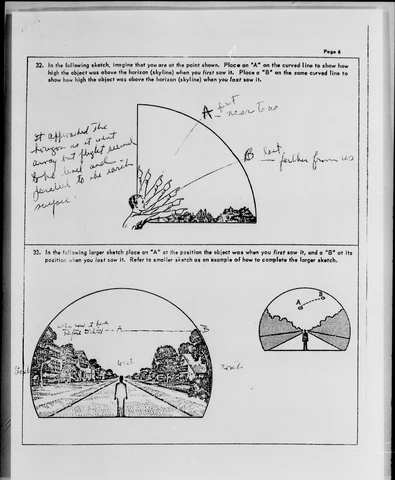 Page 6
32. In the following sketch, imagine that you are at the point shown. Place an "A" on the curved line to show how
high the object was above the horizon (skyline) when you first saw it. Place a "B" on the same curved line to
show how high the object was above the horizon (skyline) when you last saw it.
A
near to us
B last
farther from us
It approached the
horizon as it went
away but flight seemed
to be level and
parallel to the earth
33. In the following larger sketch place an "A" at the position the object was when you first saw it, and a "B" at its
position when you last saw it. Refer to smaller sketch as an example of how to complete the larger sketch.
A
B
A
B
West
South
North